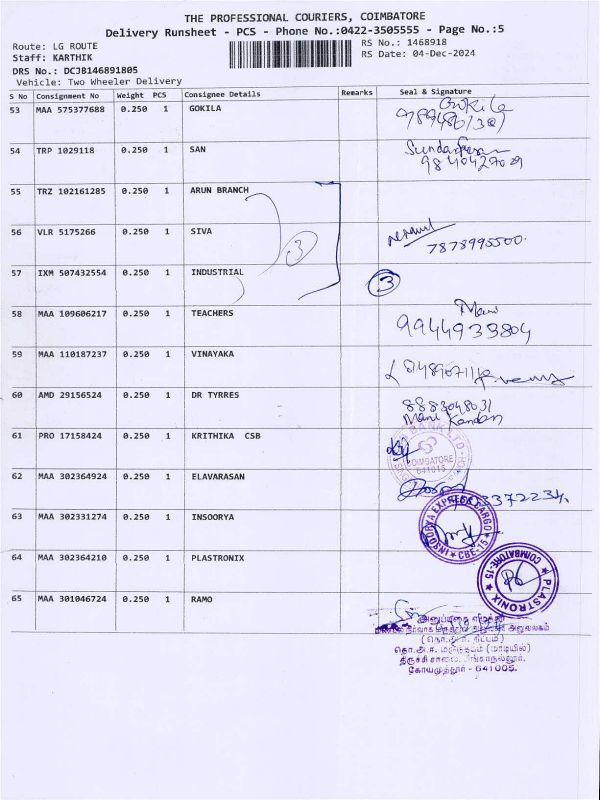 THE PROFESSIONAL COURIERS, COIMBATORE
Delivery Runsheet - PCS - Phone No.:0422-3505555 - Page No.:5
Route: LG ROUTE
RS No.: 1468918
Staff: KARTHIK
RS Date: 04-Dec-2024
DRS No.: DCJB146891805
Vehicle: Two Wheeler Delivery
S No Consignment No Weight PCS Consignee Details Remarks Seal & Signature
53 MAA 575377688 0.250 1 GOKILA
54 TRP 1029118 0.250 1 SAN
9840427029
55 TRZ 102161285 0.250 1 ARUN BRANCH
56 VLR 5175266 0.250 1 SIVA
3
7878995500.
57 IXM 507432554 0.250 1 INDUSTRIAL
3
58 MAA 109606217 0.250 1 TEACHERS
Mani
9944933804
59 MAA 110187237 0.250 1 VINAYAKA
60 AMD 29156524 0.250 1 DR TYRRES
8883048031
Mani Kandan
61 PRO 17158424 0.250 1 KRITHIKA CSB
BANK LTD
COIMBATORE
641015
62 MAA 302364924 0.250 1 ELAVARASAN
63 MAA 302331274 0.250 1 INSOORYA
INSOORYA EXPRESS CARGO
CBE-15
64 MAA 302364210 0.250 1 PLASTRONIX
PLASTRONIX
COIMBATORE-15
65 MAA 301046724 0.250 1 RAMO
அலுவலகம்
(மாடியில்)
திருச்சி சாலை,
கோயமுத்தூர் - 641005.